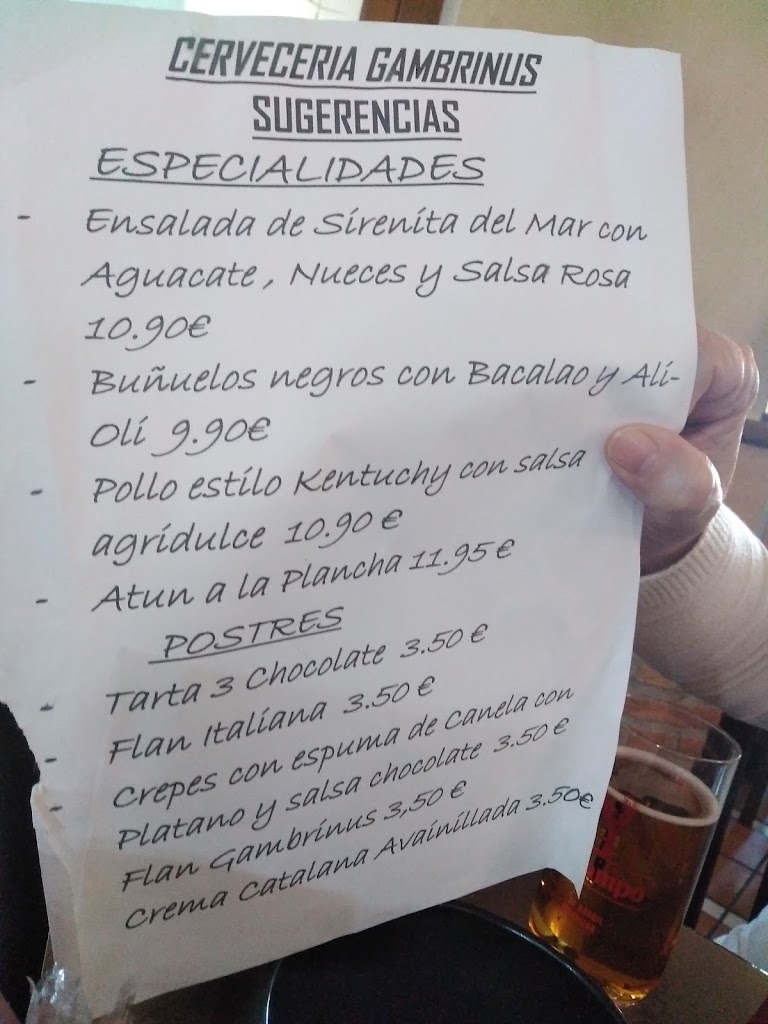 CERVECERIA GAMBRINUS
SUGERENCIAS
ESPECIALIDADES
- Ensalada de Sirenita del Mar con
Aguacate, Nueces y Salsa Rosa
10.90€
- Buñuelos negros con Bacalao y Ali-
Oli 9.90€
- Pollo estilo Kentuchy con salsa
agridulce 10.90 €
- Atun a la Plancha 11.95 €
POSTRES
- Tarta 3 Chocolate 3.50 €
- Flan Italiana 3.50 €
- Crepes con espuma de Canela con
Platano y salsa chocolate 3.50 €
Flan Gambrinus 3,50 €
Crema Catalana Avainillada 3.50€